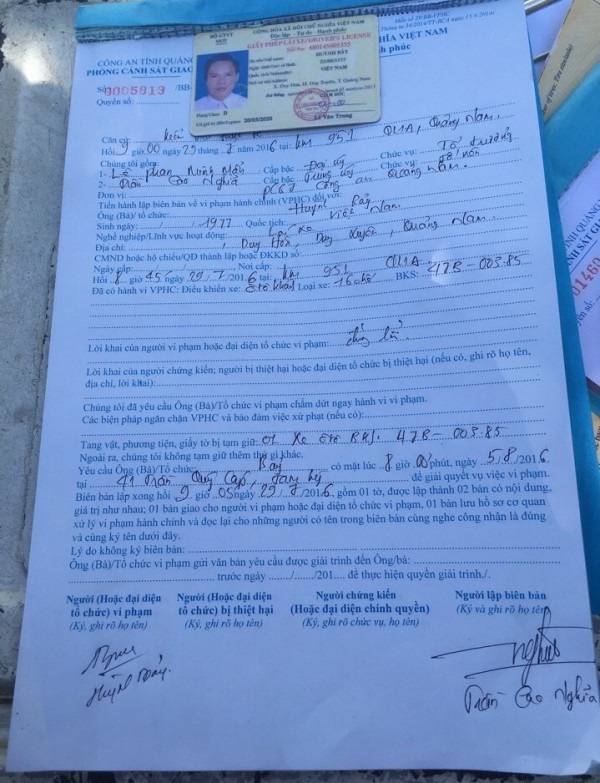 BỘ GTVT
MOT
CỘNG HÒA XÃ HỘI CHỦ NGHĨA VIỆT NAM
Độc lập - Tự do - Hạnh phúc
GIẤY PHÉP LÁI XE/DRIVER'S LICENSE
HUỲNH BẢY
VIỆT NAM
X. Duy Hòa, H. Duy Xuyên, T. Quảng Nam
Lê Văn Trung
CÔNG AN TỈNH QUẢNG
PHÒNG CẢNH SÁT GIAO
NGHĨA VIỆT NAM
phúc
Số 0005913 /BB-
Quyển số:
Căn cứ:
Hồi 9 giờ 00 ngày 29 tháng 7 năm 2016 tại km 951 QL1A, Quảng Nam.
Chúng tôi gồm:
1- Lê Phan Minh Mẫn Cấp bậc Đại úy Chức vụ: Tổ trưởng
2- Trần Cao Nghĩa Cấp bậc Trung úy Chức vụ:
Đơn vị: PC67 Công an Quảng Nam.
Tiến hành lập biên bản về vi phạm hành chính (VPHC) đối với:
Ông (Bà)/ tổ chức: Huỳnh Bảy
Sinh ngày: / /1977 Quốc tịch: Việt Nam
Nghề nghiệp/Lĩnh vực hoạt động: Lái xe
Địa chỉ: Duy Hòa, Duy Xuyên, Quảng Nam.
CMND hoặc hộ chiếu/QĐ thành lập hoặc ĐKKD số:
Ngày cấp: Nơi cấp:
Hồi 8 giờ 45 ngày 29/7/2016 tại: km 951 QL1A
Đã có hành vi VPHC: Điều khiển xe: ôtô khách Loại xe: 16 chỗ BKS: 47B-003.85
Lời khai của người vi phạm hoặc đại diện tổ chức vi phạm:
Lời khai của người chứng kiến; người bị thiệt hại hoặc đại diện tổ chức bị thiệt hại (nếu có, ghi rõ họ tên,
địa chỉ, lời khai):
Chúng tôi đã yêu cầu Ông (Bà)/Tổ chức vi phạm chấm dứt ngay hành vi vi phạm.
Các biện pháp ngăn chặn VPHC và bảo đảm việc xử phạt (nếu có):
Tang vật, phương tiện, giấy tờ bị tạm giữ: 01 xe ôtô BKS: 47B-003.85
Ngoài ra, chúng tôi không tạm giữ thêm thứ gì khác.
Yêu cầu Ông (Bà)/Tổ chức: Bảy có mặt lúc 8 giờ 00 phút, ngày 5/8/2016
tại 41 Trần Quý Cáp, Tam Kỳ để giải quyết vụ việc vi phạm.
Biên bản lập xong hồi 9 giờ 05 ngày 29/7/2016, gồm 01 tờ, được lập thành 02 bản có nội dung,
giá trị như nhau; 01 bản giao cho người vi phạm hoặc đại diện tổ chức vi phạm, 01 bản lưu hồ sơ cơ quan
xử lý vi phạm hành chính và đọc lại cho những người có tên trong biên bản cùng nghe công nhận là đúng
và cùng ký tên dưới đây.
Lý do không ký biên bản:
Ông (Bà)/Tổ chức vi phạm gửi văn bản yêu cầu được giải trình đến Ông/bà:
trước ngày ....../....../201.... để thực hiện quyền giải trình./.
Người (Hoặc đại diện
tổ chức) vi phạm
(Ký, ghi rõ họ tên)
Người (Hoặc đại diện
tổ chức) bị thiệt hại
(Ký, ghi rõ họ tên)
Người chứng kiến
(Hoặc đại diện chính quyền)
(Ký, ghi rõ chức vụ, họ tên)
Người lập biên bản
(Ký và ghi rõ họ tên)
Huỳnh Bảy.
Trần Cao Nghĩa